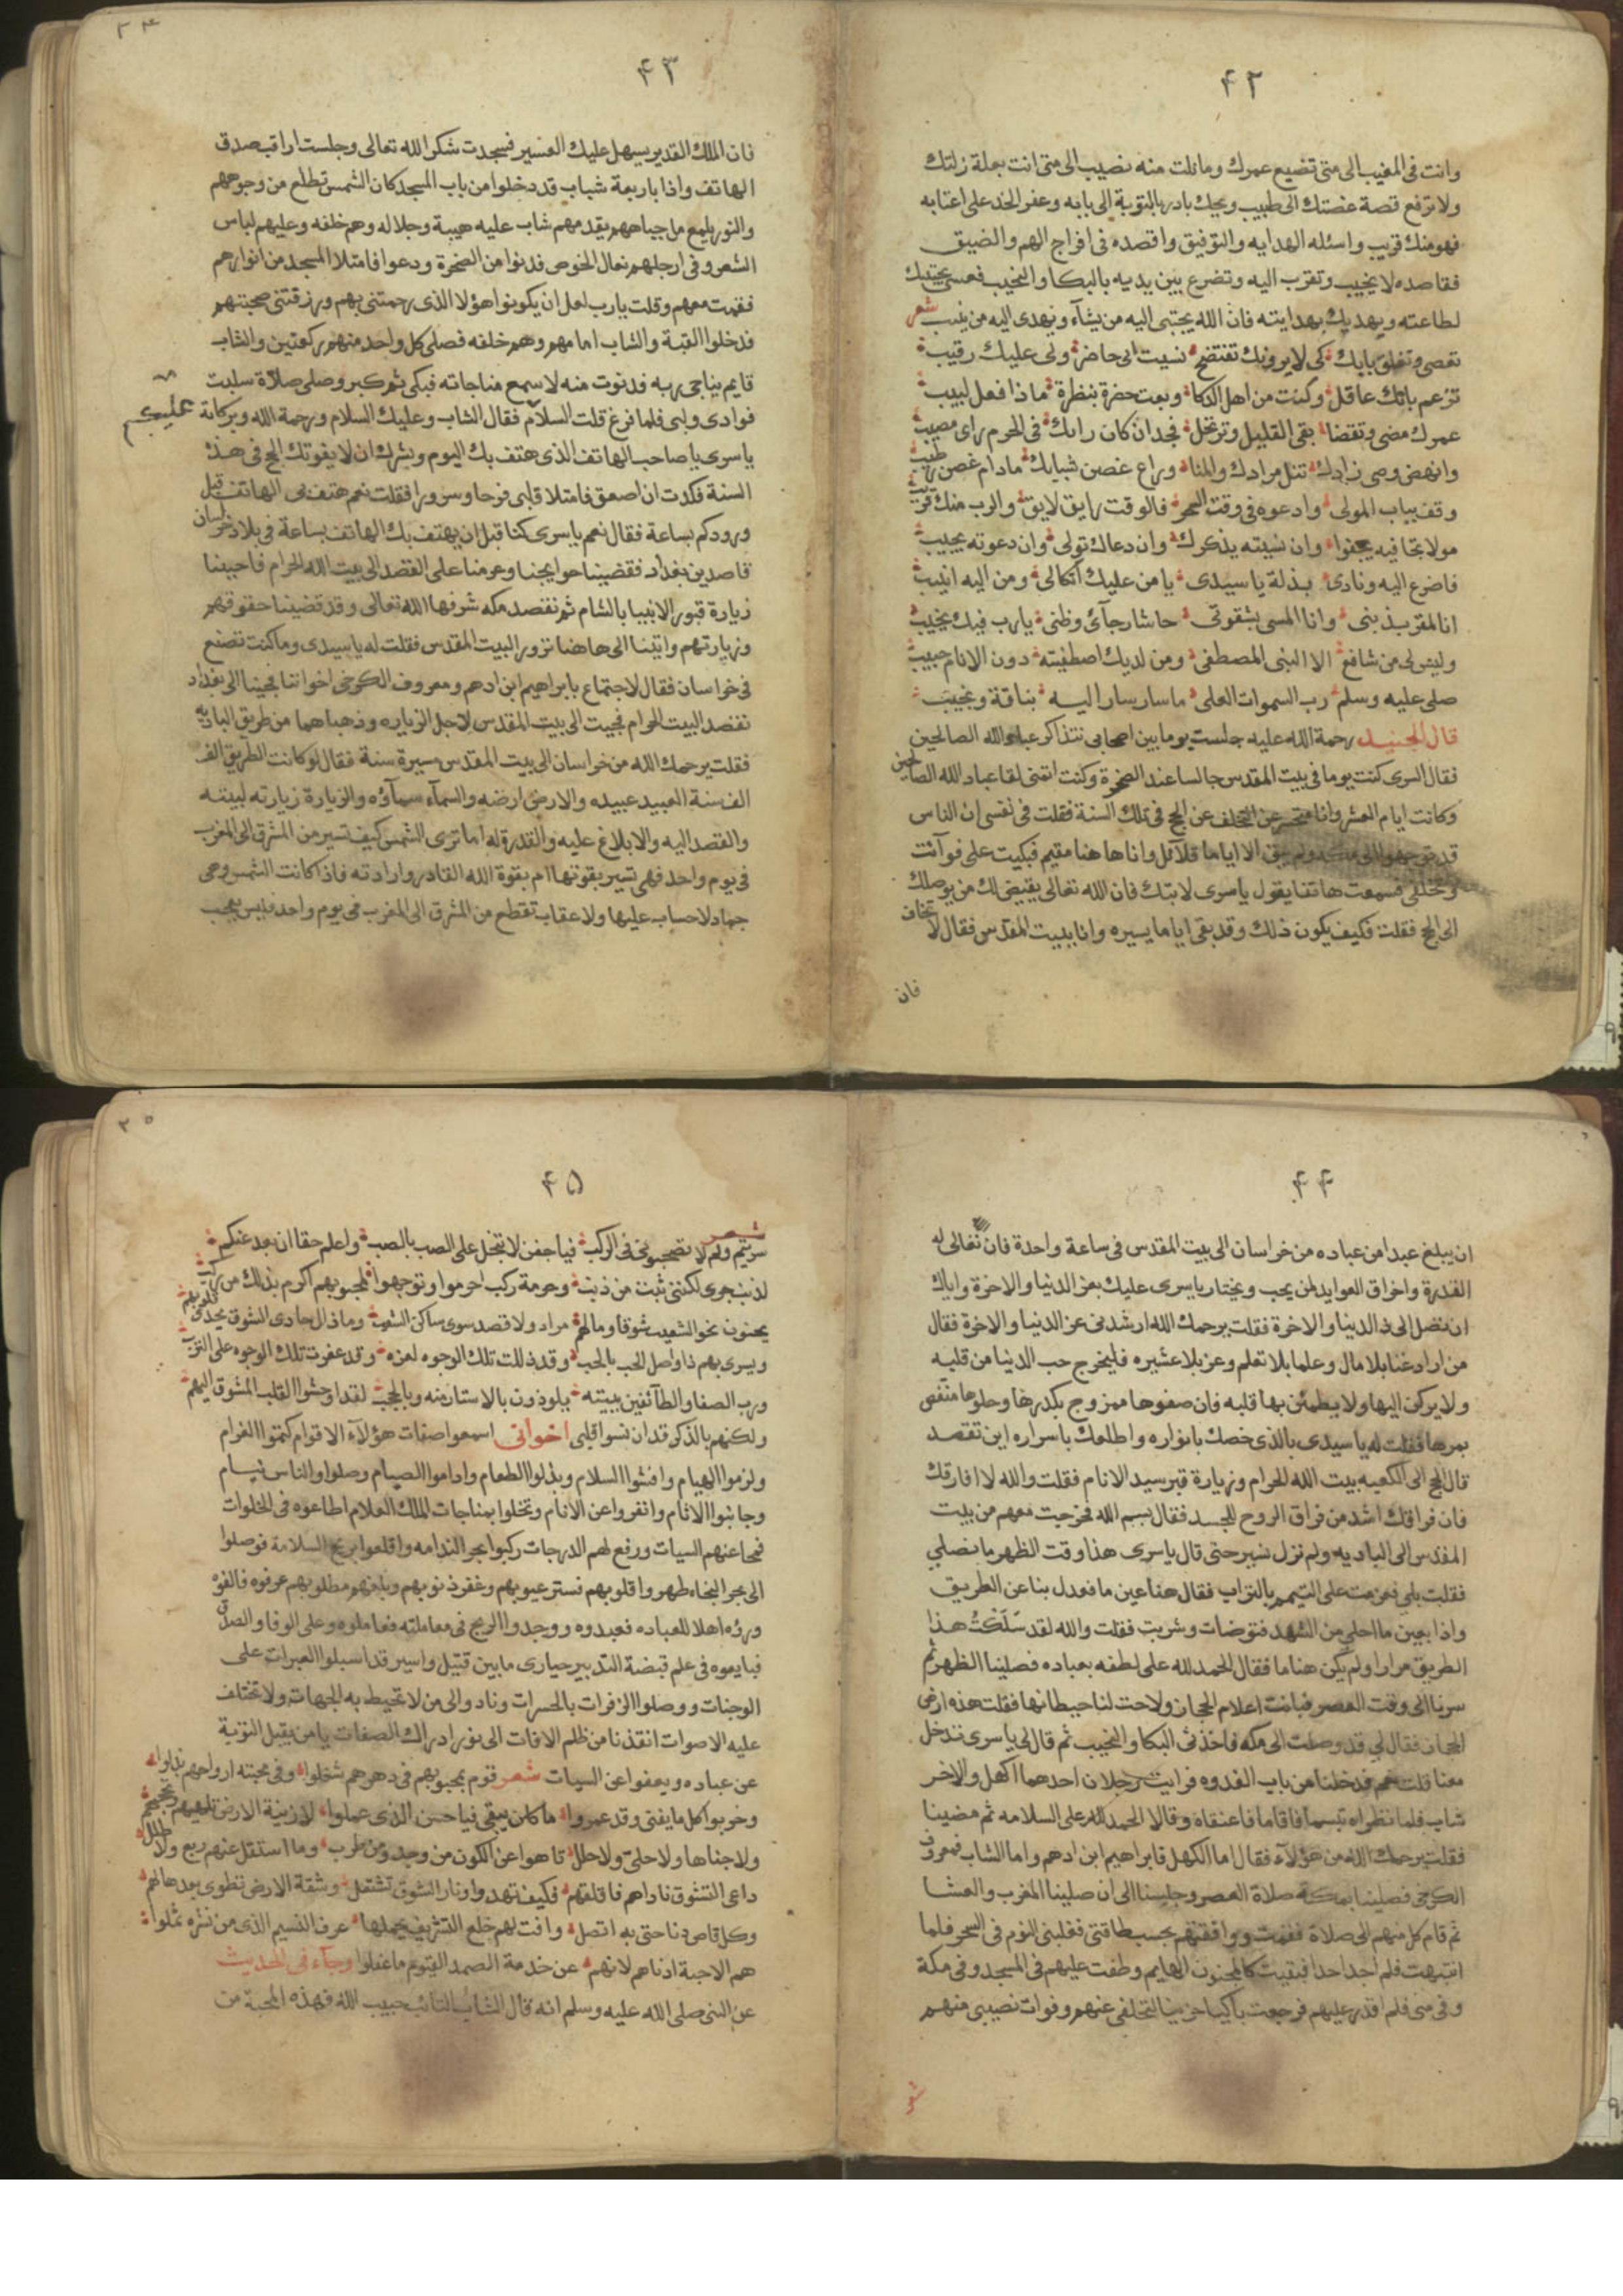 ۴۲
وانت فى المغيب الى متى تضيع عمرك ومانلت منه نصيب الى متى انت بعلة زلتك
ولا ترفع قصة غصتك الى طبيب ويحك بادر بالتوبة الى بابه وعفر الخد على اعتابه
فهو منك قريب واسئله الهدايه والتوفيق واقصده فى افراج الهم والضيق
فقاصده لا يخيب وتقرب اليه وتضرع بين يديه بالبكا والنحيب فعسى يجتبيك
لطاعته ويهديك بهدايته فان الله يجتبى اليه من يشآء ويهدى اليه من ينيب شعر
تعصى وتغلق بابك كى لا يرونك تفتضح نسيت انى حاضر ولى عليك رقيب
تزعم بانك عاقل وكنت من اهل الذكا وبعت حضرة بنظرة ماذا فعل لبيب
عمرك مضى وتقضا بقى القليل وترتحل فجد ان كان رايك فى الحرم راى مصيب
وانهض وصى زادك تنل مرادك والمنا وراع غصن شبابك مادام غصن رطيب
وقف بباب المولى وادعوه فى وقت السحر فالوقت رايق لايق والرب منك قريب
مولا تجافيه يجفوا وان نسيته يذكرك وان دعاك تولى وان دعوته يجيب
فاضرع اليه ونادى بذلة ياسيدى يامن عليك اتكالى ومن اليه انيب
انا المقر بذنبى وانا المسى بشقوتى حاشا رجآئ وظنى يارب فيك يخيب
وليس لى من شافع الا النبى المصطفى ومن لديك اصطفيته دون الانام حبيب
صلى عليه وسلم رب السموات العلى ماسار سار اليه بناقة ونجيب
قال الجنيد رحمة الله عليه جلست يوما بين اصحابى نتذاكر عباد الله الصالحين
فقال السرى كنت يوما فى بيت المقدس جالسا عند الصخرة وكنت اتمنى لقا عباد الله الصالحين
وكانت ايام العشر وانا متحسر عن التخلف عن الحج فى تلك السنة فقلت فى نفسى ان الناس
قد توجهوا الى مكه ولم يبق الا اياما قلآئل وانا هاهنا مقيم فبكيت على فوآئت
وتخلفى فسمعت هاتفا يقول ياسرى لا تبك فان الله تعالى يقيض لك من يوصلك
الى الحج فقلت فكيف يكون ذلك وقد بقى اياما يسيره وانا ببيت المقدس فقال لا تخاف
فان
۴۳
فان الملك القدير يسهل عليك العسير فسجدت شكرا لله تعالى وجلست اراقب صدق
الهاتف واذا باربعة شباب قد دخلوا من باب المسجد كان الشمس تطلع من وجوههم
والنور يلمع من جباههم يقدمهم شاب عليه هيبة وجلاله وهم خلفه وعليهم لباس
الشعر وفى ارجلهم نعال الخوص فدنوا من الصخرة ودعوا فامتلا المسجد من انوارهم
فقمت معهم وقلت يارب لعل ان يكونوا هؤلا الذى رحمتنى بهم ورزقتنى صحبتهم
فدخلوا القبة والشاب امامهم وهم خلفه فصلى كل واحد منهم ركعتين والشاب
قايم يناجى ربه فدنوت منه لاسمع مناجاته فبكى ثم كبر وصلى صلاة سلبت
فوادى ولبى فلما فرغ قلت السلام فقال الشاب وعليك السلام ورحمة الله وبركاتة عليكم
ياسرى ياصاحب الهاتف الذى هتف بك اليوم وبشرك ان لا يفوتك الحج فى هذه
السنة فكدت ان اصعق فامتلا قلبى فرحا وسرورا فقلت نعم هتف بى الهاتف قبل
ورودكم بساعة فقال نعم ياسرى كنا قبل ان يهتف بك الهاتف بساعة فى بلاد خراسان
قاصدين بغداد فقضينا حوايجنا وعزمنا على القصد الى بيت الله الحرام فاحببنا
زيارة قبور الانبيا بالشام ثم نقصد مكه شرفها الله تعالى وقد قضينا حقوقهم
وزيارتهم واتينا الى هاهنا نزور البيت المقدس فقلت له ياسيدى وماكنت تصنع
فى خراسان فقال لاجتماع بابراهيم ابن ادهم ومعروف الكرخى اخواننا فجينا الى بغداد
نقصد البيت الحرام فجيت الى بيت المقدس لاجل الزياره وذهبا هما من طريق الباديه
فقلت يرحمك الله من خراسان الى بيت المقدس مسيرة سنة فقال لو كانت الطريق الف
الف سنة العبيد عبيده والارض ارضه والسمآء سمآؤه والزيارة زيارته لبيته
والقصد اليه والابلاغ عليه والقدرة له اما ترى الشمس كيف تسير من المشرق الى المغرب
فى يوم واحد فهى تسير بقوتها ام بقوة الله القادر وارادته فاذا كانت الشمس وهى
جماد لا حساب عليها ولا عقاب تقطع من المشرق الى المغرب فى يوم واحد فليس بعجب
۴۴
ان يبلغ عبدا من عباده من خراسان الى بيت المقدس فى ساعة واحدة فان تعالى له
القدرة واخراق العوايد لمن يحب ويختار ياسرى عليك بعز الدنيا والاخرة واياك
ان تصل الى ذل الدنيا والاخرة فقلت يرحمك الله ارشدنى عن الدنيا والاخرة فقال
من اراد غنا بلا مال وعلما بلا تعلم وعز بلا عشيره فليخرج حب الدنيا من قلبه
ولا يركن اليها ولا يطمئن بها قلبه فان صفوها ممزوج بكدرها وحلوها منغص
بمرها فقلت له ياسيدى بالذى خصك بانواره واطلعك باسراره اين تقصد
قال الحج الى الكعبه بيت الله الحرام وزيارة قبر سيد الانام فقلت والله لا افارقك
فان فراقك اشد من فراق الروح للجسد فقال بسم الله فخرجت معهم من بيت
المقدس الى الباديه ولم نزل نسير حتى قال ياسرى هذا وقت الظهر ما نصلي
فقلت بلي فعزمت على التيمم بالتراب فقال هنا عين ما فعدل بنا عن الطريق
واذا بعين ما احلى من الشهد فتوضات وشربت فقلت والله لقد سَلَكْتُ هذا
الطريق مرارا ولم يكن هناما فقال الحمد لله على لطفه بعباده فصلينا الظهر ثم
سرنا الى وقت العصر فبانت اعلام الحجاز ولاحت لنا حيطانها فقلت هذه ارض
الحجاز فقال لى قد وصلت الى مكه فاخذنى البكا والنحيب ثم قال لى ياسرى تدخل
معنا قلت نعم فدخلنا من باب الندوه فرايت رجلان احدهما اكهل والاخر
شاب فلما نظراه تبسما فاقاما فاعنقاه وقالا الحمد لله على السلامه ثم مضينا
فقلت يرحمك الله من هؤلآء فقال اما الكهل فابراهيم ابن ادهم واما الشاب فمعروف
الكرخى فصلينا بمكة صلاة العصر وجلسنا الى ان صلينا المغرب والعشا
ثم قام كل منهم الى صلاة فقمت ووافقتهم بحسب طاقتى فغلبنى النوم فى السحر فلما
انتبهت فلم اجد احدا فبقيت كالمجنون الهايم وطفت عليهم فى المسجد وفى مكة
وفى منى فلم اقدر عليهم فرجعت باكيا حزينا لتخلفى عنهم وفوات نصيبى منهم
شعر
۴۵
شعر
سريتم ولم لا تصحبونى فى الركب فياجفن لا تبخل على الصب بالصب واعلم حقا ان بعد عنكم
لذنب جرى لكننى تبت من ذنب وحرمة ركب احرموا وتوجهوا لمحبوبهم اكرم بذلك من ركب
يحنون نحو الشعب شوقا ومالهم مراد ولا قصد سوى ساكن الشعب وماذال حادى الشوق يحدى قلوبهم
ويسرى بهم ذا واصل الحب بالحب وقد ذلت تلك الوجوه لعزه وقد عفرت تلك الوجوه على الترب
ورب الصفا والطآئفين ببيته يلوذون بالاستار منه وبالحجب لقد اوحشوا القلب المشوق اليهم
ولكنهم بالذكر قد انسوا قلبى اخوانى اسمعوا صفات هؤلآء الاقوام كتموا الغرام
ولزموا الهيام وافشوا السلام وبذلوا الطعام واداموا الصيام وصلوا والناس نيام
وجانبوا الاثام وانفردوا عن الانام وتخلوا بمناجات الملك العلام اطاعوه فى الخلوات
فمحا عنهم السيات ورفع لهم الدرجات ركبوا بحر الندامه واقلعوا بريح السلامة فوصلوا
الى بحر النجاه طهروا قلوبهم فستر عيوبهم وغفر ذنوبهم وبلغهم مطلوبهم عرفوه فالفوه
وراؤه اهلا للعباده فعبدوه ووجدوا الربح فى معاملته فعاملوه وعلى الوفا والصدق
فبايعوه فى علم قبضة التدبير حيارى مابين قتيل واسير قد اسبلوا العبرات على
الوجنات ووصلوا الزفرات بالحسرات ونادوا الى من لا تحيط به الجهات ولا تختلف
عليه الاصوات انقذنا من ظلم الافات الى نور ادراك الصفات يامن يقبل التوبة
عن عباده ويعفوا عن السيات شعر قوم بمحبوبهم فى دهرهم شغلوا وفى محبته ارواحهم بذلوا
وخربوا كل ما يفنى وقد عمروا ما كان يبقى فياحسن الذى عملوا لا زينة الارض تلهيهم
ولا جناها ولا حلى ولا حلل تاهوا عن الكون من وجد ومن طرب وما استقل عنهم ربع ولا طلل
داعى التشوق ناداهم فاقلقهم فكيف تهدوا ونار الشوق تشتعل وشقة الارض تطوى بعدها لهم
وكل قاصدنا حتى به اتصل وافت لهم خلع التشريف يحملها عرف النسيم الذى من نشره ثملوا
هم الاحبة ادناهم لانهم عن خدمة الصمد القيوم ماغفلوا وجآء فى الحديث
عن النبى صلى الله عليه وسلم انه قال الشاب التائب حبيب الله فهذه المحبة من